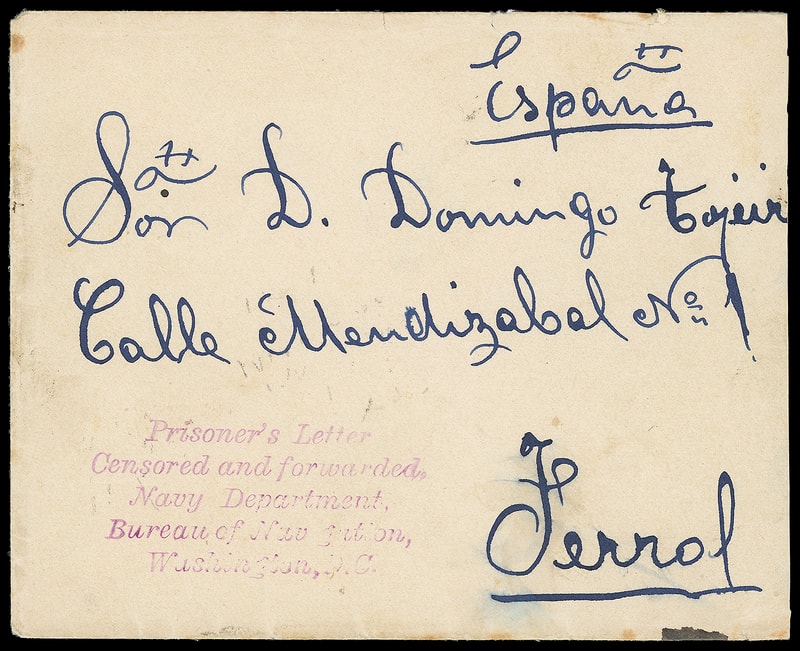 España
Sor D. Domingo Tojeir
Calle Mendizabal Nº 1
Prisoner's Letter
Censored and forwarded,
Navy Department,
Bureau of Navigation,
Washington, D.C.
Ferrol